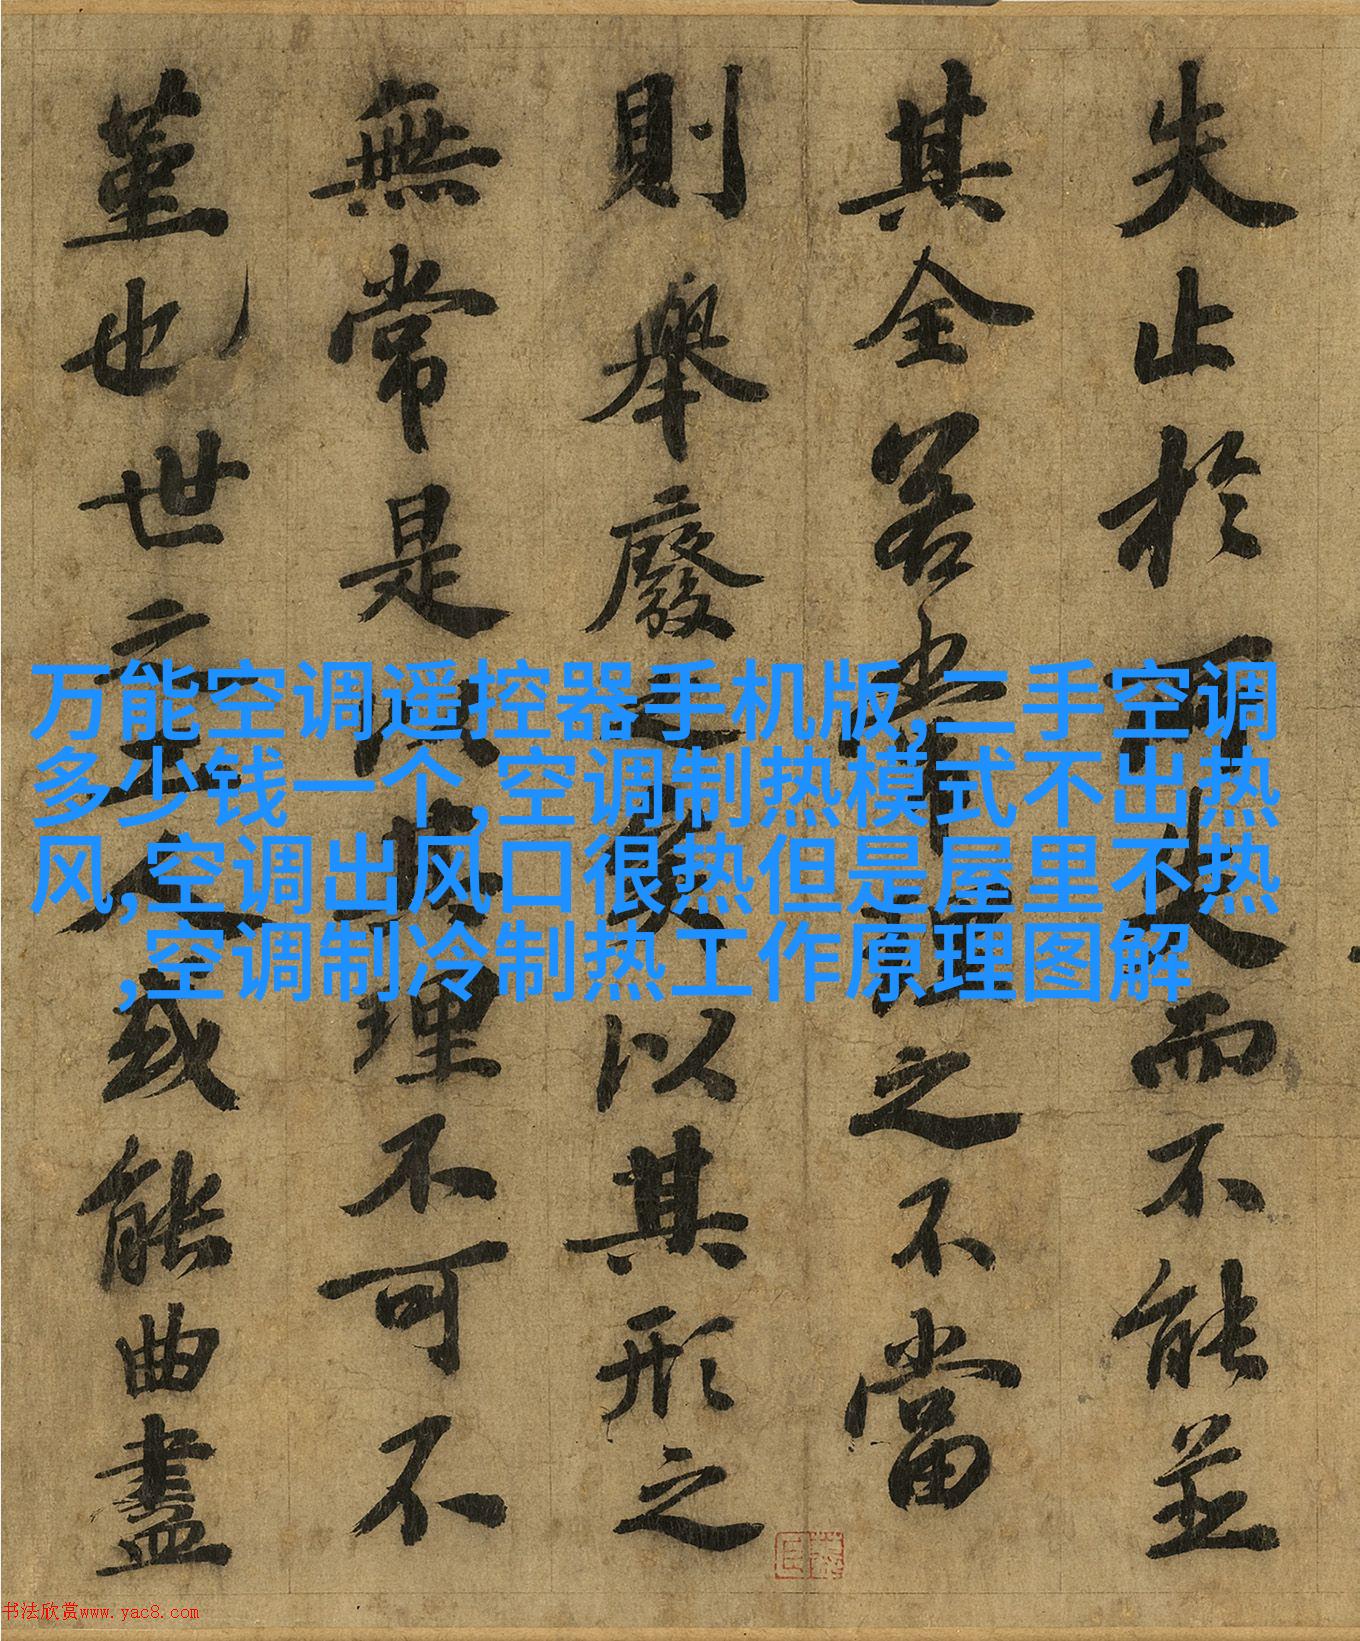 失止於所失而不能並
其全若常理之不當
則舉廢之矣以其形之
無常是以其理不可不
堇也世之工人或能曲盡
万能空调遥控器手机版,二手空调
多少钱一个,空调制热模式不出热
风,空调出风口很热但是屋里不热
,空调制冷制热工作原理图解
书法欣赏www.yac8.com